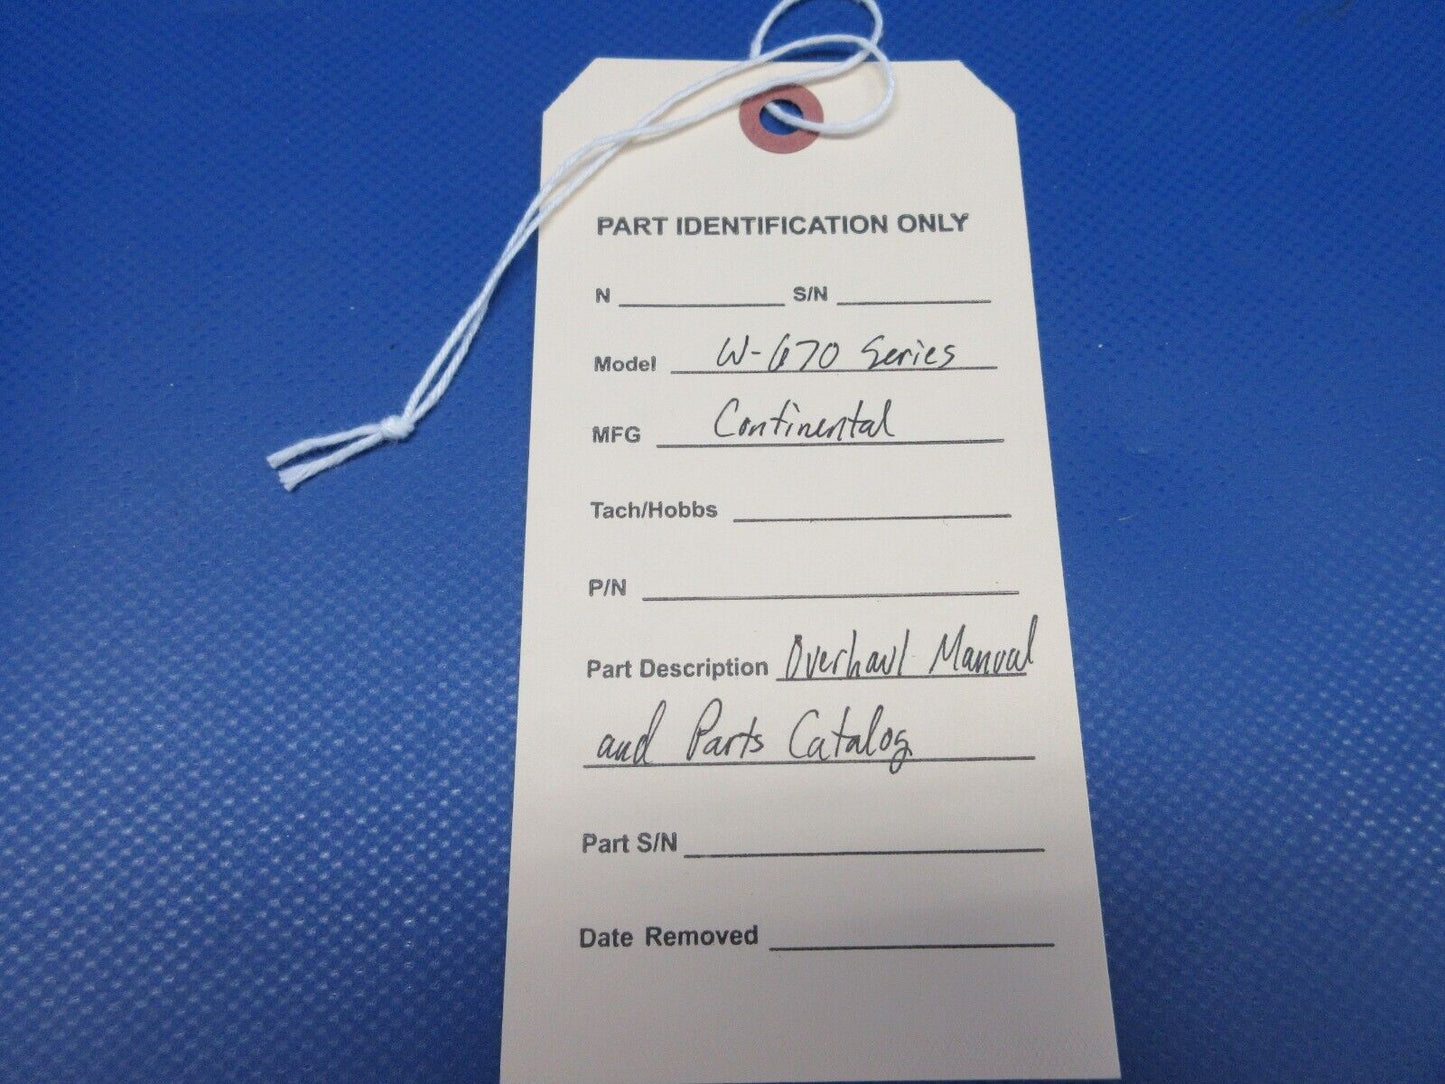 PART IDENTIFICATION ONLY
N S/N
Model W-670 Series
MFG Continental
Tach/Hobbs
P/N
Part Description Overhaul Manual
and Parts Catalog
Part S/N
Date Removed